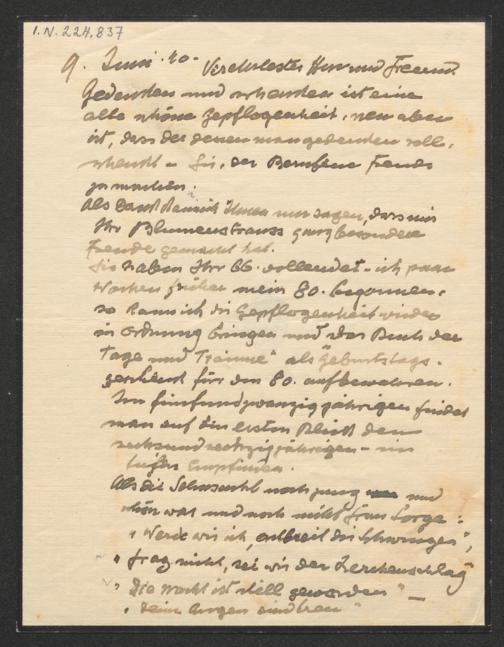 I.N. 224.837
9. Juni 40. Verehrtester Herr und Freund.
Gedenken und schenken ist eine
alte schöne Gepflogenheit, neu aber
ist, dass der denen man gedenken soll,
schenkt - Sie, der Berufene Freude
zu machen.
Als Dank kann ich Ihnen nur sagen, dass mir
Ihr Blumenstrauss ganz besondere
Freude gemacht hat.
Sie haben Ihr 66. vollendet - ich paar
Wochen früher mein 80. begonnen,
so kann ich die Gepflogenheit wieder
in Ordnung bringen und das Buch der
Tage und Träume" als Geburtstags-
geschenk für den 80. aufbewahren.
Im fünfundzwanzigjährigen findet
man auf den ersten Blick den
sechsundsechzigjährigen - im
tiefen Empfinden.
Als die Sehnsucht noch jung und
schön war und noch nicht Frau Sorge:
"Werde wie ich, entbreit die Schwingen",
"frag nicht, sei wie der Lerchenschlag"
"Die Nacht ist still geworden" —
"Deine Augen sind